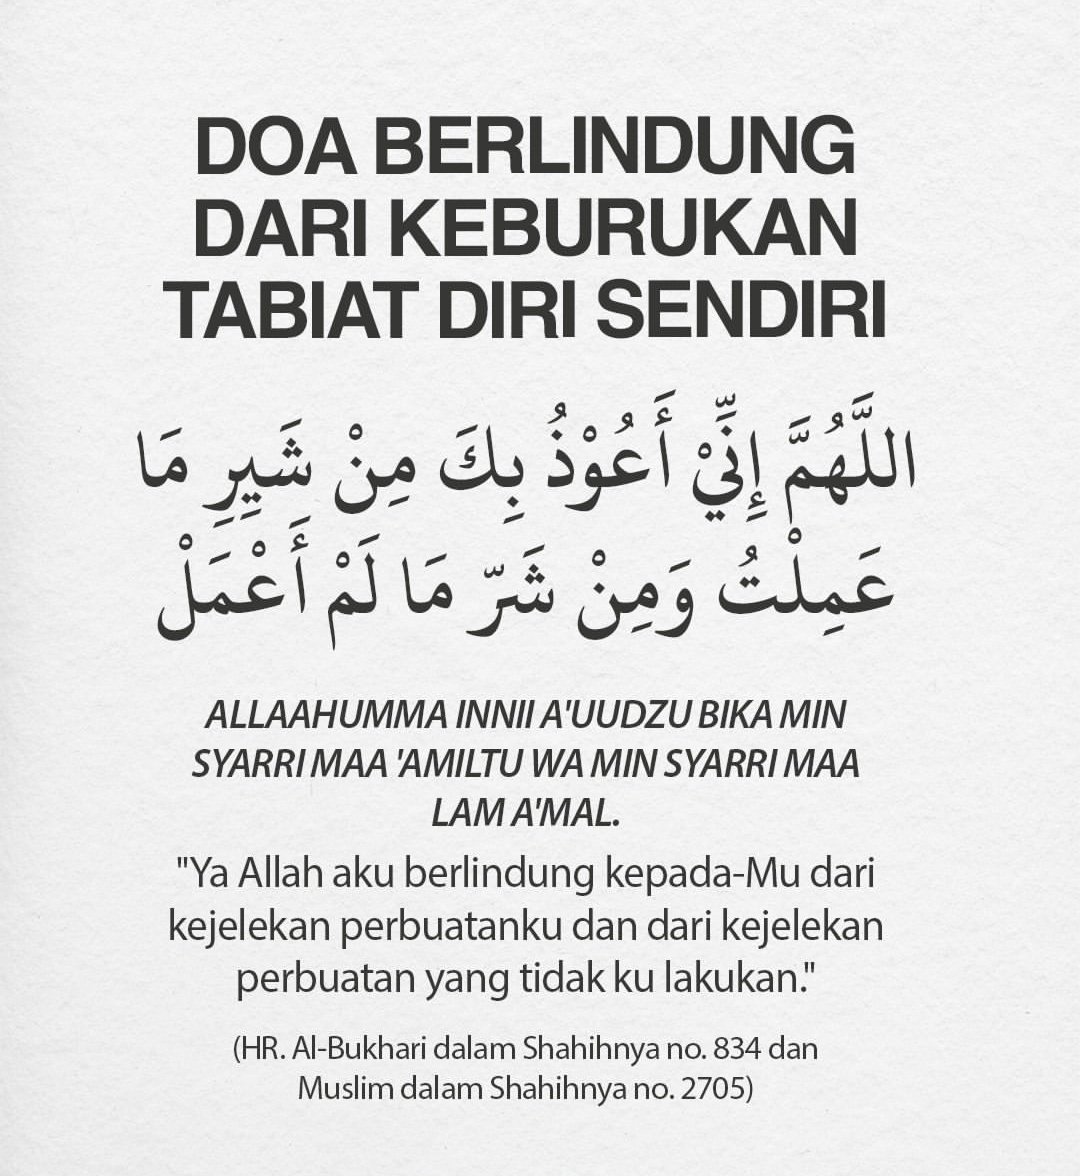 DOA BERLINDUNG
DARI KEBURUKAN
TABIAT DIRI SENDIRI
اللَّهُمَّ إِنِّيْ أَعُوْذُ بِكَ مِنْ شَيِرِ مَا
عَمِلْتُ وَمِنْ شَرّ مَا لَمْ أَعْمَلْ
ALLAAHUMMA INNII A'UUDZU BIKA MIN
SYARRI MAA 'AMILTU WA MIN SYARRI MAA
LAM A'MAL.
"Ya Allah aku berlindung kepada-Mu dari
kejelekan perbuatanku dan dari kejelekan
perbuatan yang tidak ku lakukan."
(HR. Al-Bukhari dalam Shahihnya no. 834 dan
Muslim dalam Shahihnya no. 2705)